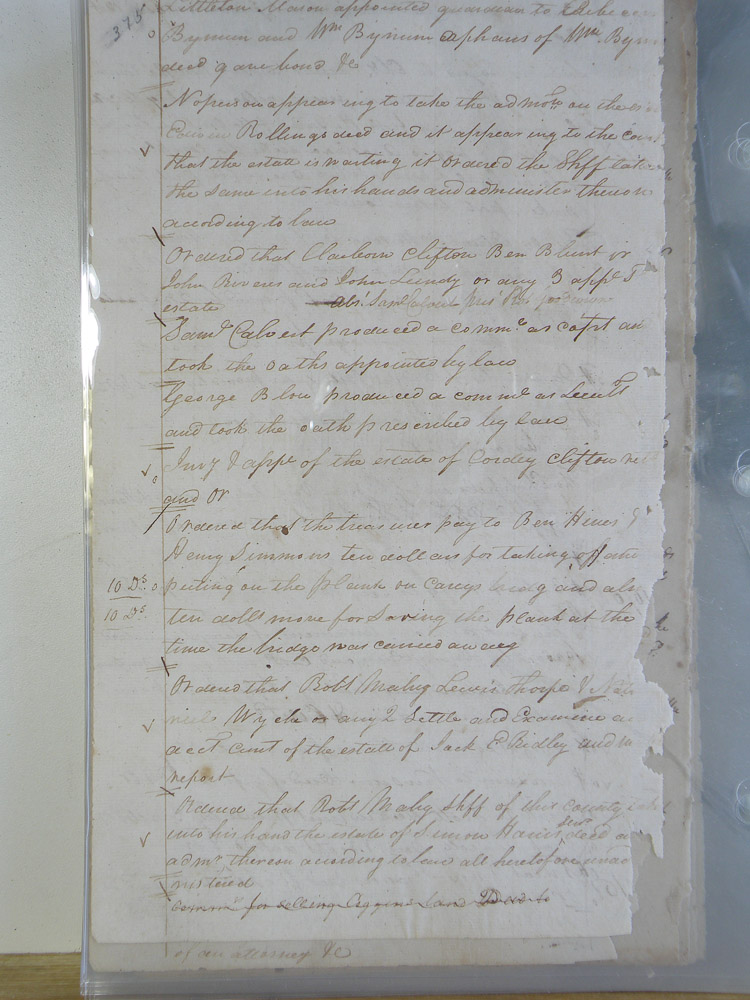 Littleton Mason appointed guardian to
375
Bynum and Wm Bynum orphans of Wm Byn
decd gave bond &c
No person appearing to take the admon on the
Rollings decd and it appearing to the cou
that the estate is wasting it Ordered the Shff take
the same into his hands and administer thereon
according to law
Ordered that Claiborn Clifton Ben Blunt jr
John Rivers and John Lundy or any 3 appr
estate
Saml Calvert produced a comme as capt an
took the oaths appointed by law
George Blow produced a comme as Lieutt
and took the oath prescribed by law
Invy & appt of the estate of Cordey Clifton
and Or
Ordered that the treasurer pay to Ben Hines &
Henry Simmons ten dollars for taking off and
10 Ds. puting on the plank on Careys bridg and als
10 Ds. ten dolls more for saving the plank at the
time the bridge was carried away
Ordered that Robt Maby Lewis Thorpe &
Wych or any 2 settle and Examine an
acct Curt of the estate of Jack E Ridley and
report
Ordered that Robt Maby Shff of this county
into his hand the estate of Simon Harris decd
admr thereon according to law all heretofore unad
nistered
for selling
of an attorney &c